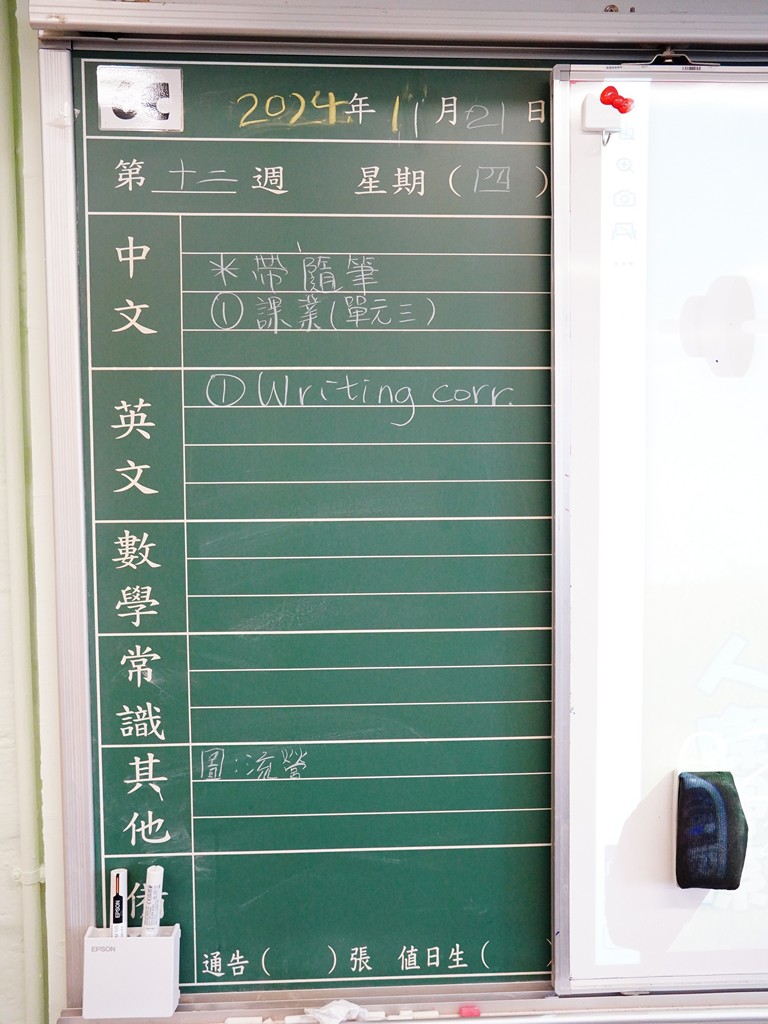 2024年 11月21日
第 十二 週 星期（四）
中文
＊帶隨筆
①課業(單元三)
英文
① Writing corr.
數學
常識
其他
圖:流螢
備
EPSON
EPSON
通告（ ）張 值日生（